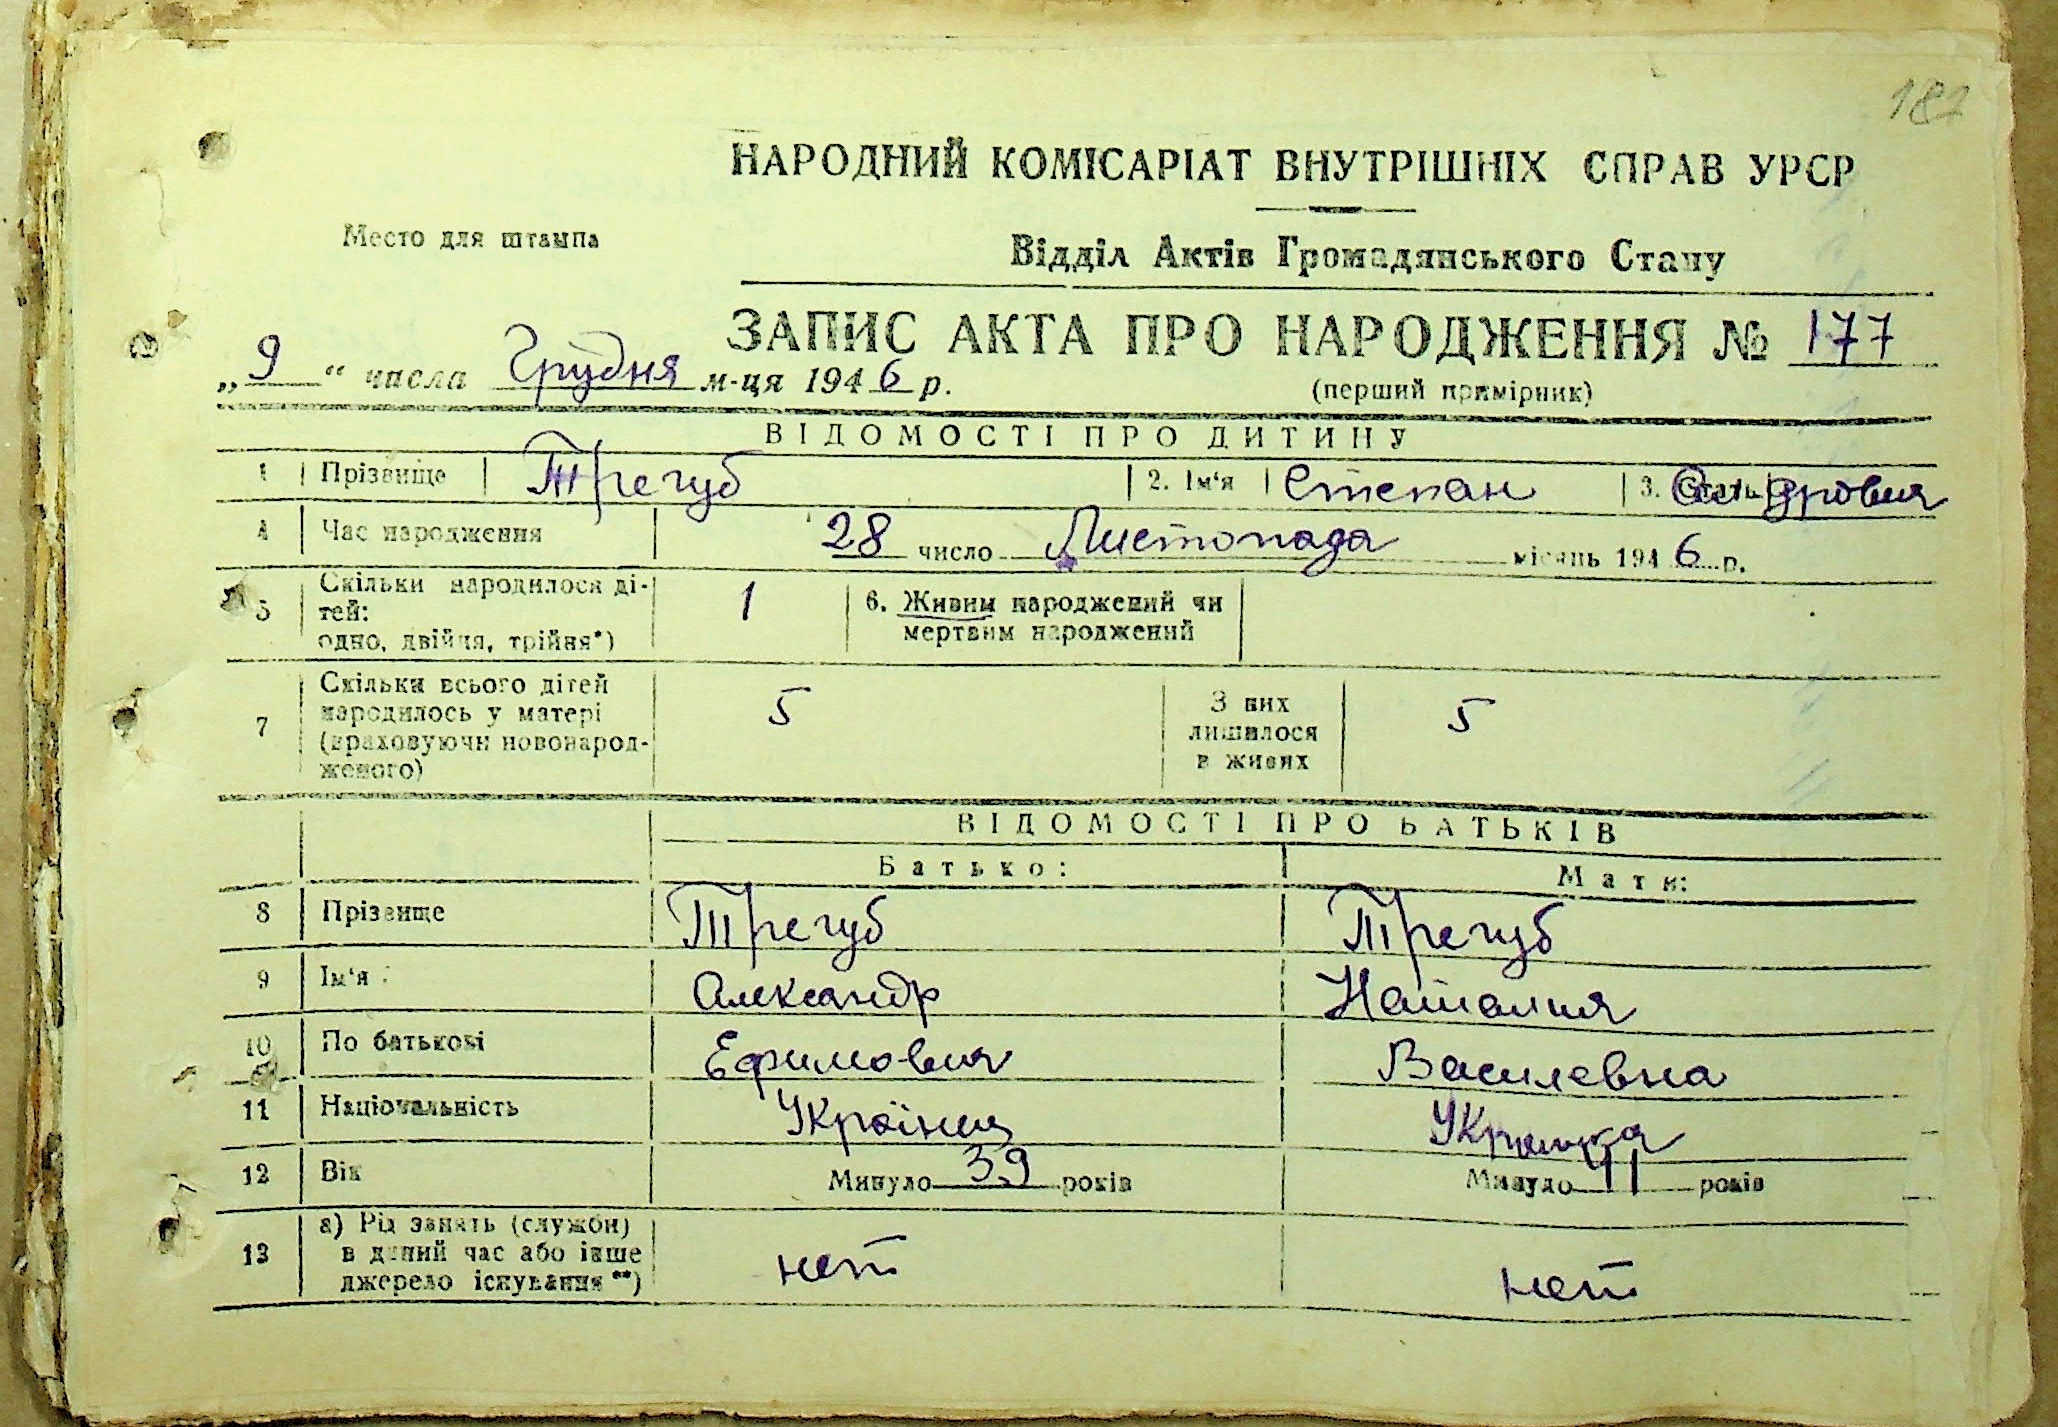 182
НАРОДНИЙ КОМІСАРІАТ ВНУТРІШНІХ СПРАВ УРСР
Место для штампа
Відділ Актів Громадянського Стану
ЗАПИС АКТА ПРО НАРОДЖЕННЯ № 177
„9“ числа Грудня м-ця 1946 р.
(перший примірник)
ВІДОМОСТІ ПРО ДИТИНУ
1 Прізвище Трегуб 2. Ім'я Степан 3. Стать
4 Час народження 28 число Листопада місяць 1946 р.
5 Скільки народилося ді-
тей:
одно, двійня, трійня*) 1 6. Живим народжений чи
мертвим народжений
7 Скільки всього дітей
народилось у матері
(враховуючи новонарод-
женого) 5 З них
лишилося
в живих 5
ВІДОМОСТІ ПРО БАТЬКІВ
Батько: Мати:
8 Прізвище Трегуб Трегуб
9 Ім'я Александр Наталия
10 По батькові Ефимович Василевна
11 Національність Українец
12 Вік Минуло 39 років Минуло 11 років
13 а) Рід занять (служби)
в даний час або інше
джерело існування**) нет нет